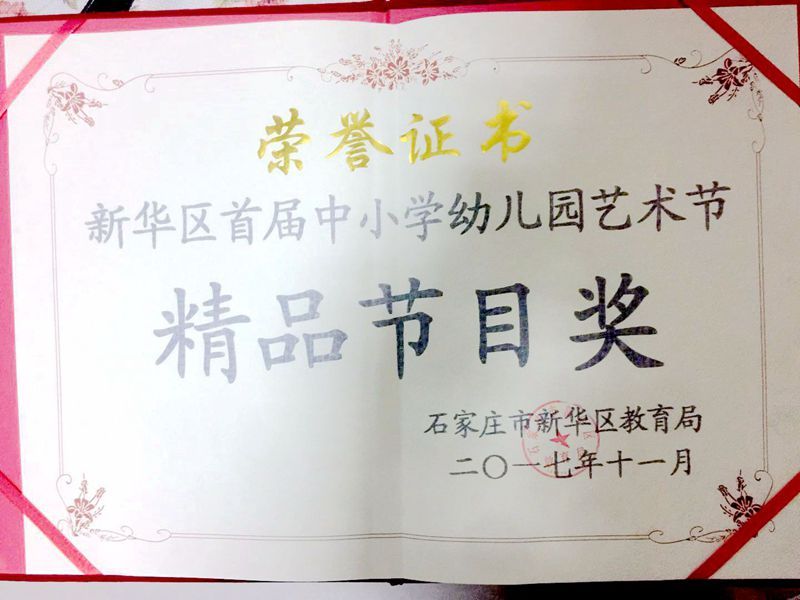 荣誉证书
新华区首届中小学幼儿园艺术节
精品节目奖
石家庄市新华区教育局
二〇一七年十一月